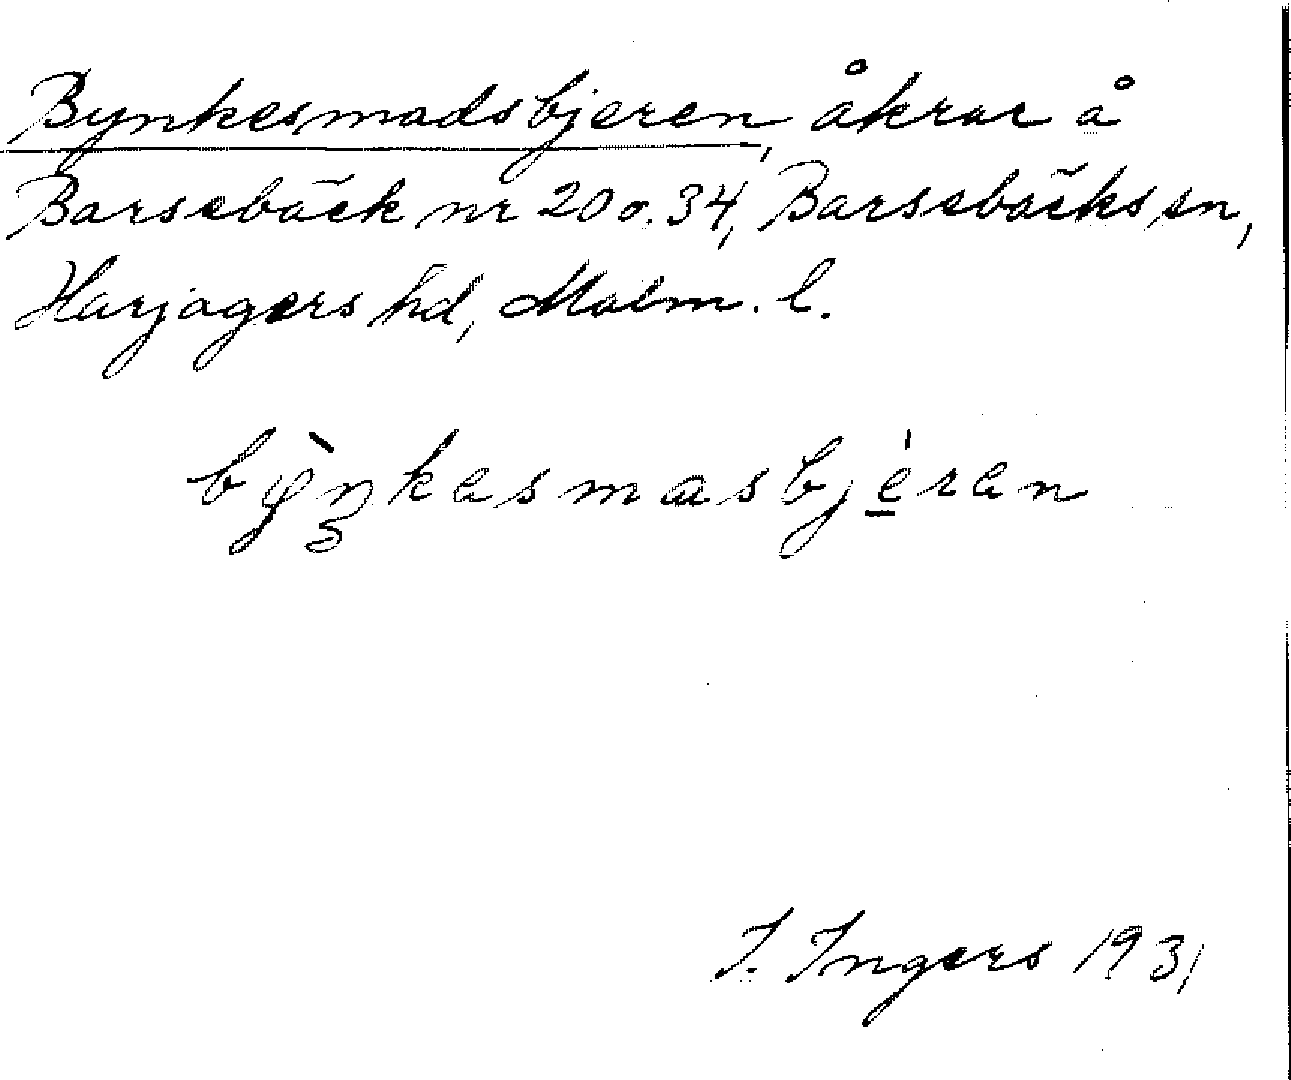 Bynkesmadsbjeren, åkrar å
Barsebäck nr 20 o. 34, Barsebäcks sn,
Harjagers hd, Malm. l.
bỳŋkesmasbjéren
I. Ingers 1931